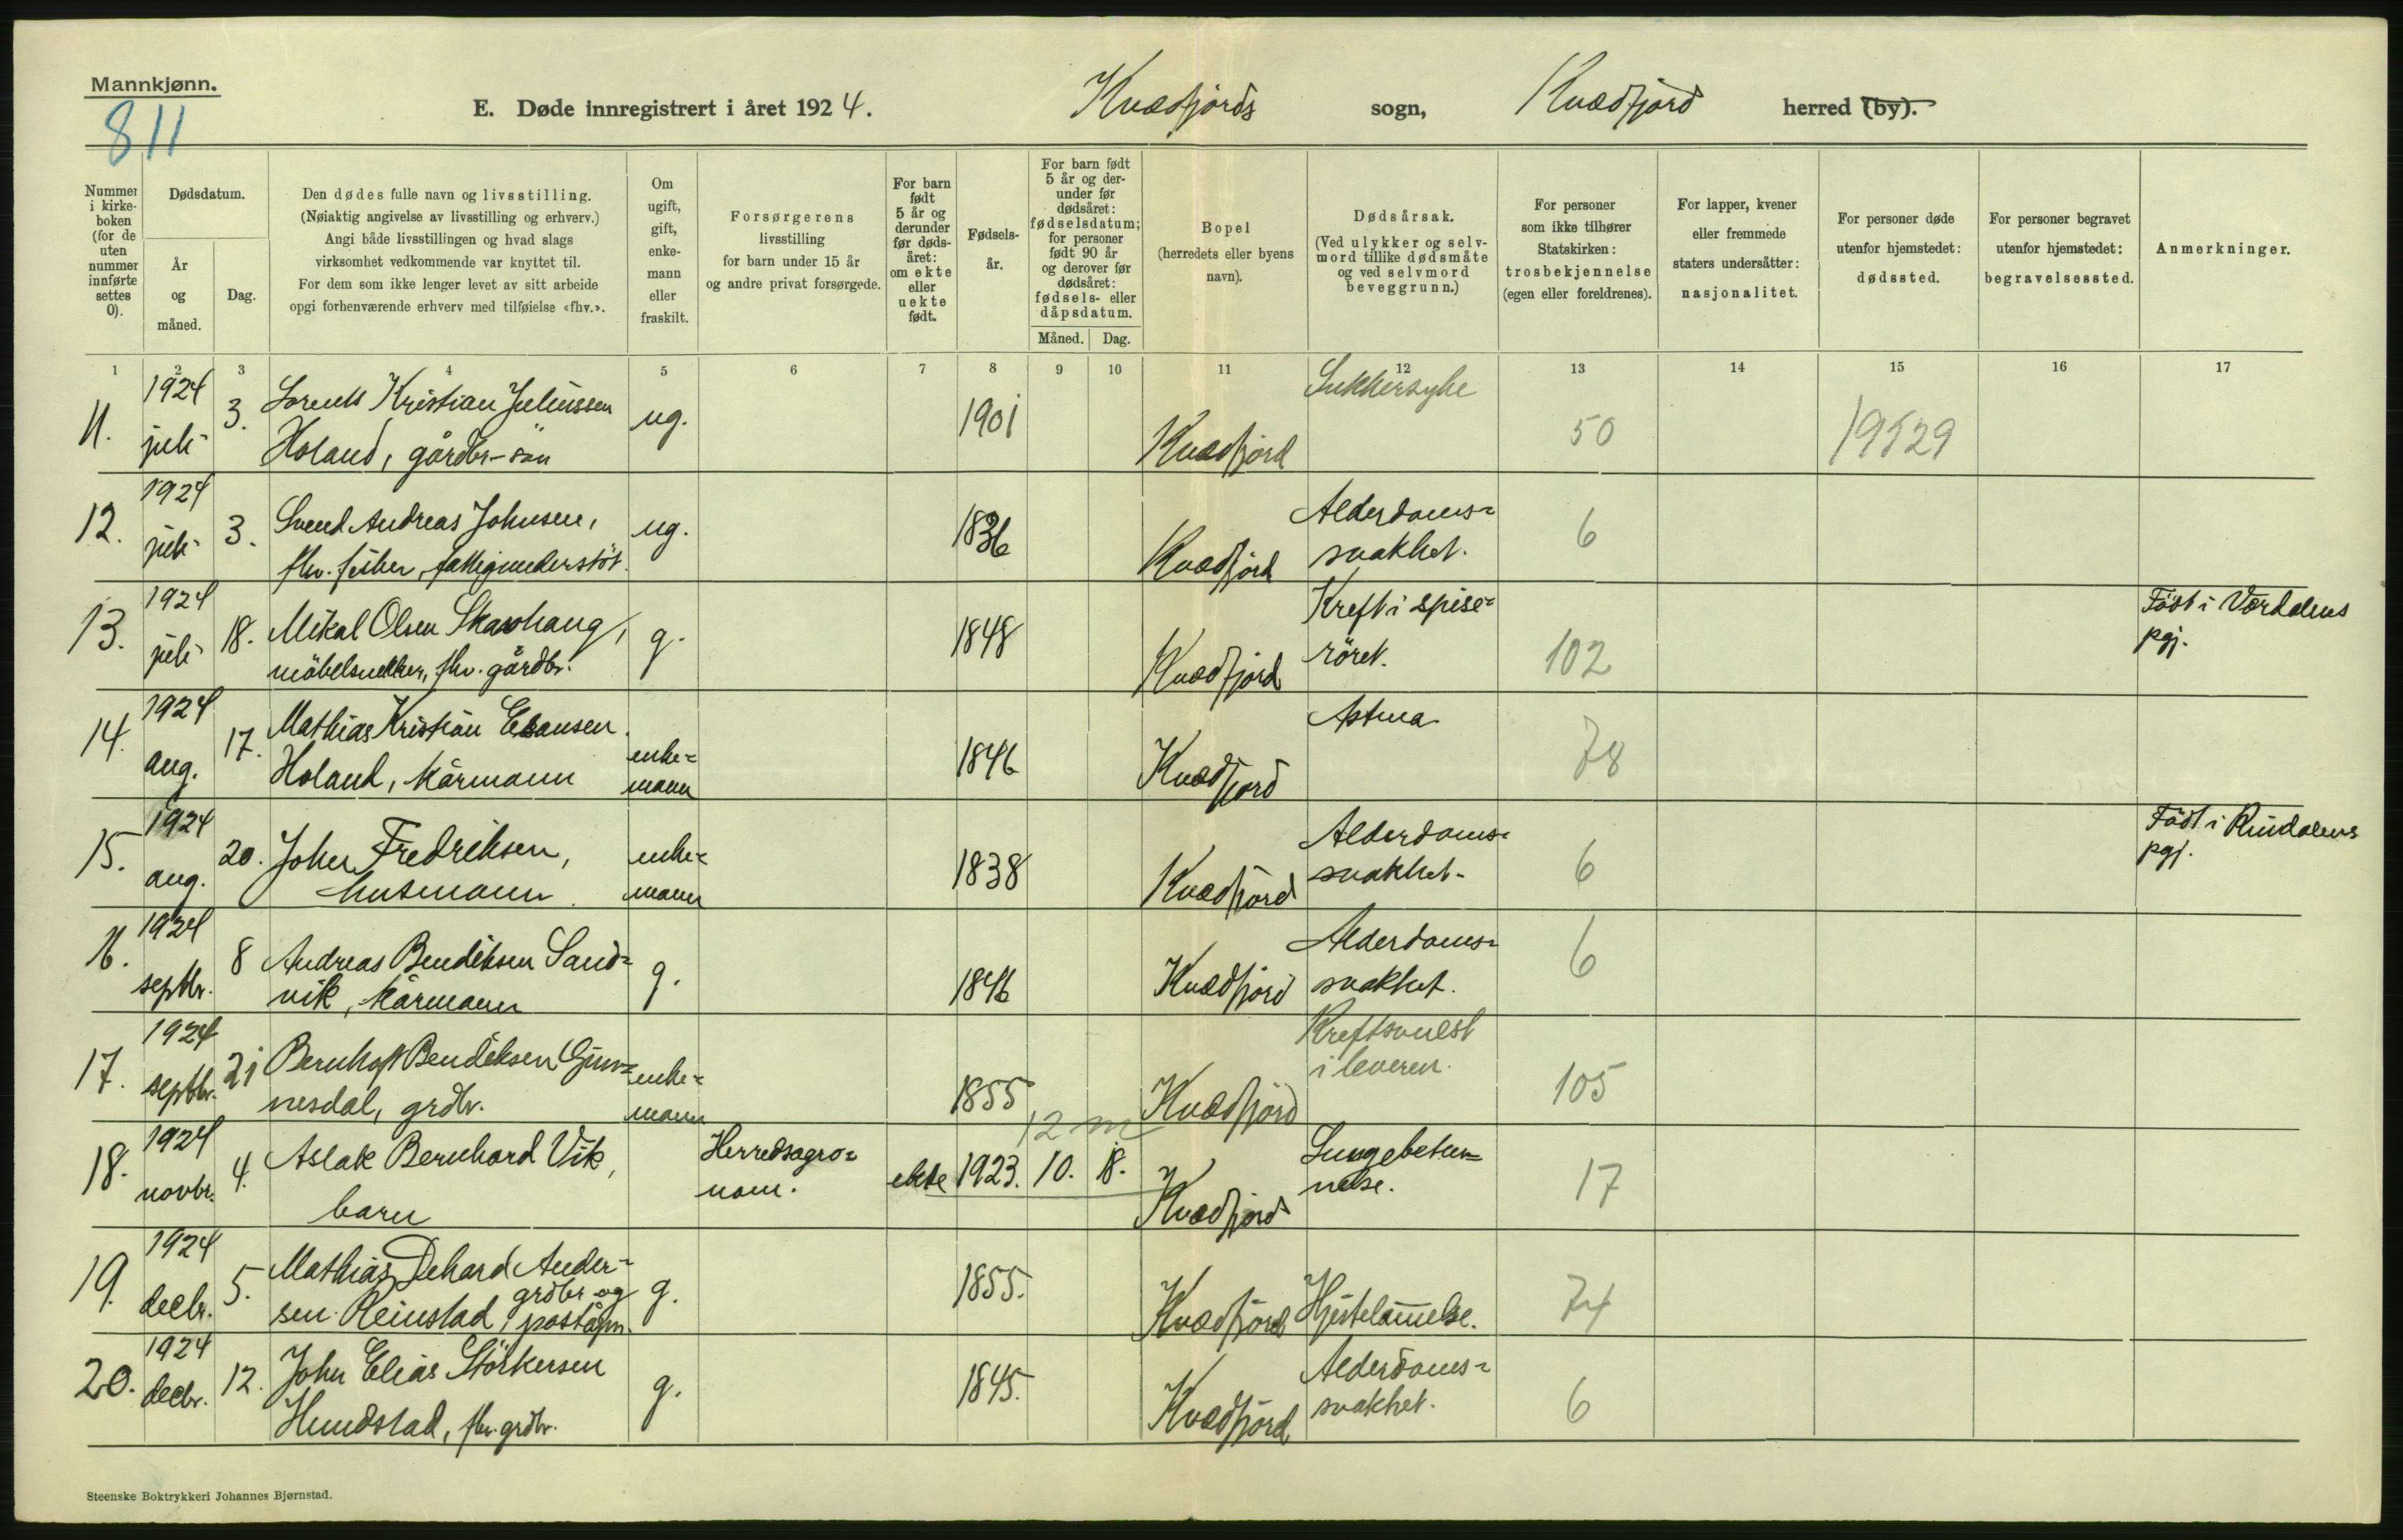 Mannkjønn.
811
E. Døde innregistrert i året 1924.
Kvæfjords sogn, Kvædfjord herred (by).
Nummer i kirke-boken (for de uten nummer innførte settes 0).
Dødsdatum.
År og måned.
Dag.
Den dødes fulle navn og livsstilling.
(Nøiaktig angivelse av livsstilling og erhverv.)
Angi både livsstillingen og hvad slags
virksomhet vedkommende var knyttet til.
For dem som ikke lenger levet av sitt arbeide
opgi forhenværende erhverv med tilføielse «fhv.».
Om ugift, gift, enke-mann eller fraskilt.
Forsørgerens
livsstilling
for barn under 15 år
og andre privat forsørgede.
For barn født 5 år og derunder før døds-året: om ekte eller uekte født.
Fødsels-år.
For barn født 5 år og der-under før dødsåret: fødselsdatum; for personer født 90 år og derover før dødsåret: fødsels- eller dåpsdatum.
Måned. Dag.
Bopel
(herredets eller byens
navn).
Dødsårsak.
(Ved ulykker og selv-
mord tillike dødsmåte
og ved selvmord
beveggrunn.)
For personer
som ikke tilhører
Statskirken:
trosbekjennelse
(egen eller foreldrenes).
For lapper, kvener
eller fremmede
staters undersåtter:
nasjonalitet.
For personer døde
utenfor hjemstedet:
dødssted.
For personer begravet
utenfor hjemstedet:
begravelsessted.
Anmerkninger.
1 2 3 4 5 6 7 8 9 10 11 12 13 14 15 16 17
11. 1924 juli 3. Lorents Kristian Juliussen
Holand, gårdbr-sön ug. 1901 Kvædfjord Sukkersyke 50 19529
12. 1924 juli 3. Svend Andreas Johnsen,
fhv. fisker, fattigunderstöt. ug. 1836 Kvædfjord Alderdoms-
svakhet. 6
13. 1924 juli 18. Mikal Olsen Skavhaug,
möbelsnekker, fhv. gårdbr. g. 1848 Kvædfjord Kreft i spise-
röret. 102 Födt i Værdalens
pgj.
14. 1924 aug. 17. Mathias Kristian
Holand, kårmann enke-
mann 1846 Kvædfjord Astma 78
15. 1924 aug. 20. John Fredriksen,
husmann. enke-
mann 1838 Kvædfjord Alderdoms-
svakhet. 6 Födt i Rindalens
pgj.
16. 1924 septbr. 8 Andreas Bendiksen Sand-
vik, kårmann g. 1846 Kvædfjord Alderdoms-
svakhet. 6
17. 1924 septbr. 21 Bernhoft Bendiksen Gjøn-
nesdal, grdbr. enke-
mann 1855 Kvædfjord Kreftsvulst
i leveren. 105
12 m
18. 1924 novbr. 4. Aslak Bernhard Vik,
barn Herredsagro-
nom. ekte 1923. 10. 18. Kvædfjord Lungebeten-
nelse. 17
19. 1924 decbr. 5. Mathias Dehard Ander-
sen Reinstad, grdbr. og
poståpn. g. 1855. Kvædfjord Hjertelammelse. 74
20. 1924 decbr. 12. John Elias Störkersen
Hundstad, fhv. grdbr. g. 1845. Kvædfjord Alderdoms-
svakhet. 6
Steenske Boktrykkeri Johannes Bjørnstad.